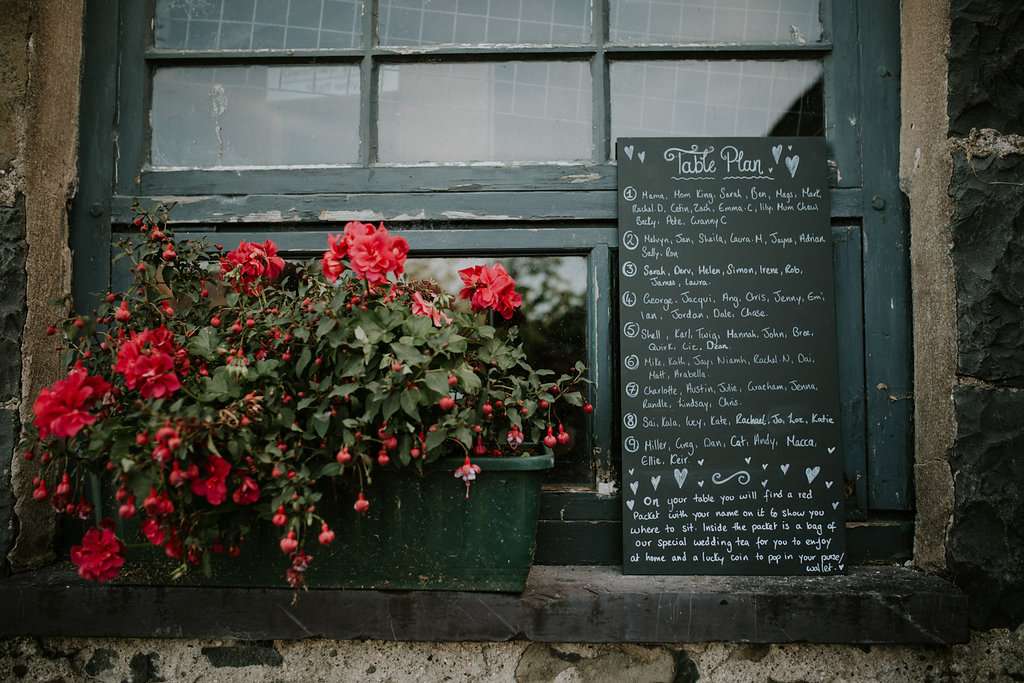 Table Plan
1 Mama, Mom King, Sarah, Ben, Megs, Mark,
Rachel.D, Colin, Zach, Emma.C, Lily, Mum Chew
Betty, Pete, Granny C
2 Melvyn, Jan, Sheila, Laura.M, Jayne, Adrian
Sally, Ron
3 Sarah, Derv, Helen, Simon, Irene, Rob,
James, Laura.
4 George, Jacqui, Ang, Chris, Jenny, Emi
Ian, Jordan, Dale, Chase.
5 Shell, Karl, Twig, Hannah, John, Bree,
Quirk, Liz, Dean.
6 Mike, Kath, Jay, Niamh, Rachel.N, Dai,
Matt, Arabella.
7 Charlotte, Austin, Julie, Graeham, Jenna,
Randle, Lindsay, Chris.
8 Sai, Kala, Lucy, Kate, Rachael, Jo, Zoe, Katie
9 Miller, Greg, Dan, Cat, Andy, Macca,
Ellie, Keir.
On your table you will find a red
Packet with your name on it to show you
where to sit. Inside the packet is a bag of
our special wedding tea for you to enjoy
at home and a lucky coin to pop in your purse/
wallet.